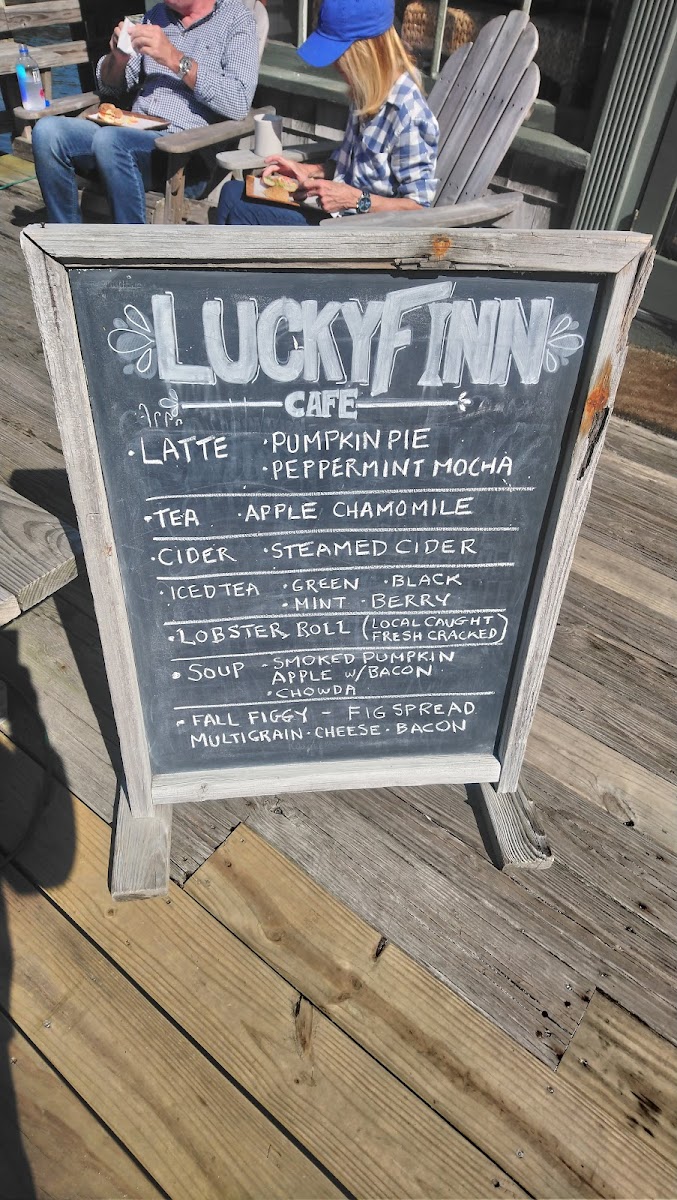 LUCKY FINN
CAFE
· LATTE · PUMPKIN PIE
· PEPPERMINT MOCHA
· TEA · APPLE CHAMOMILE
· CIDER · STEAMED CIDER
· ICED TEA · GREEN · BLACK
· MINT · BERRY
· LOBSTER ROLL (LOCAL CAUGHT
FRESH CRACKED)
· SOUP - SMOKED PUMPKIN
APPLE W/BACON
· CHOWDA
· FALL FIGGY - FIG SPREAD
MULTIGRAIN · CHEESE · BACON